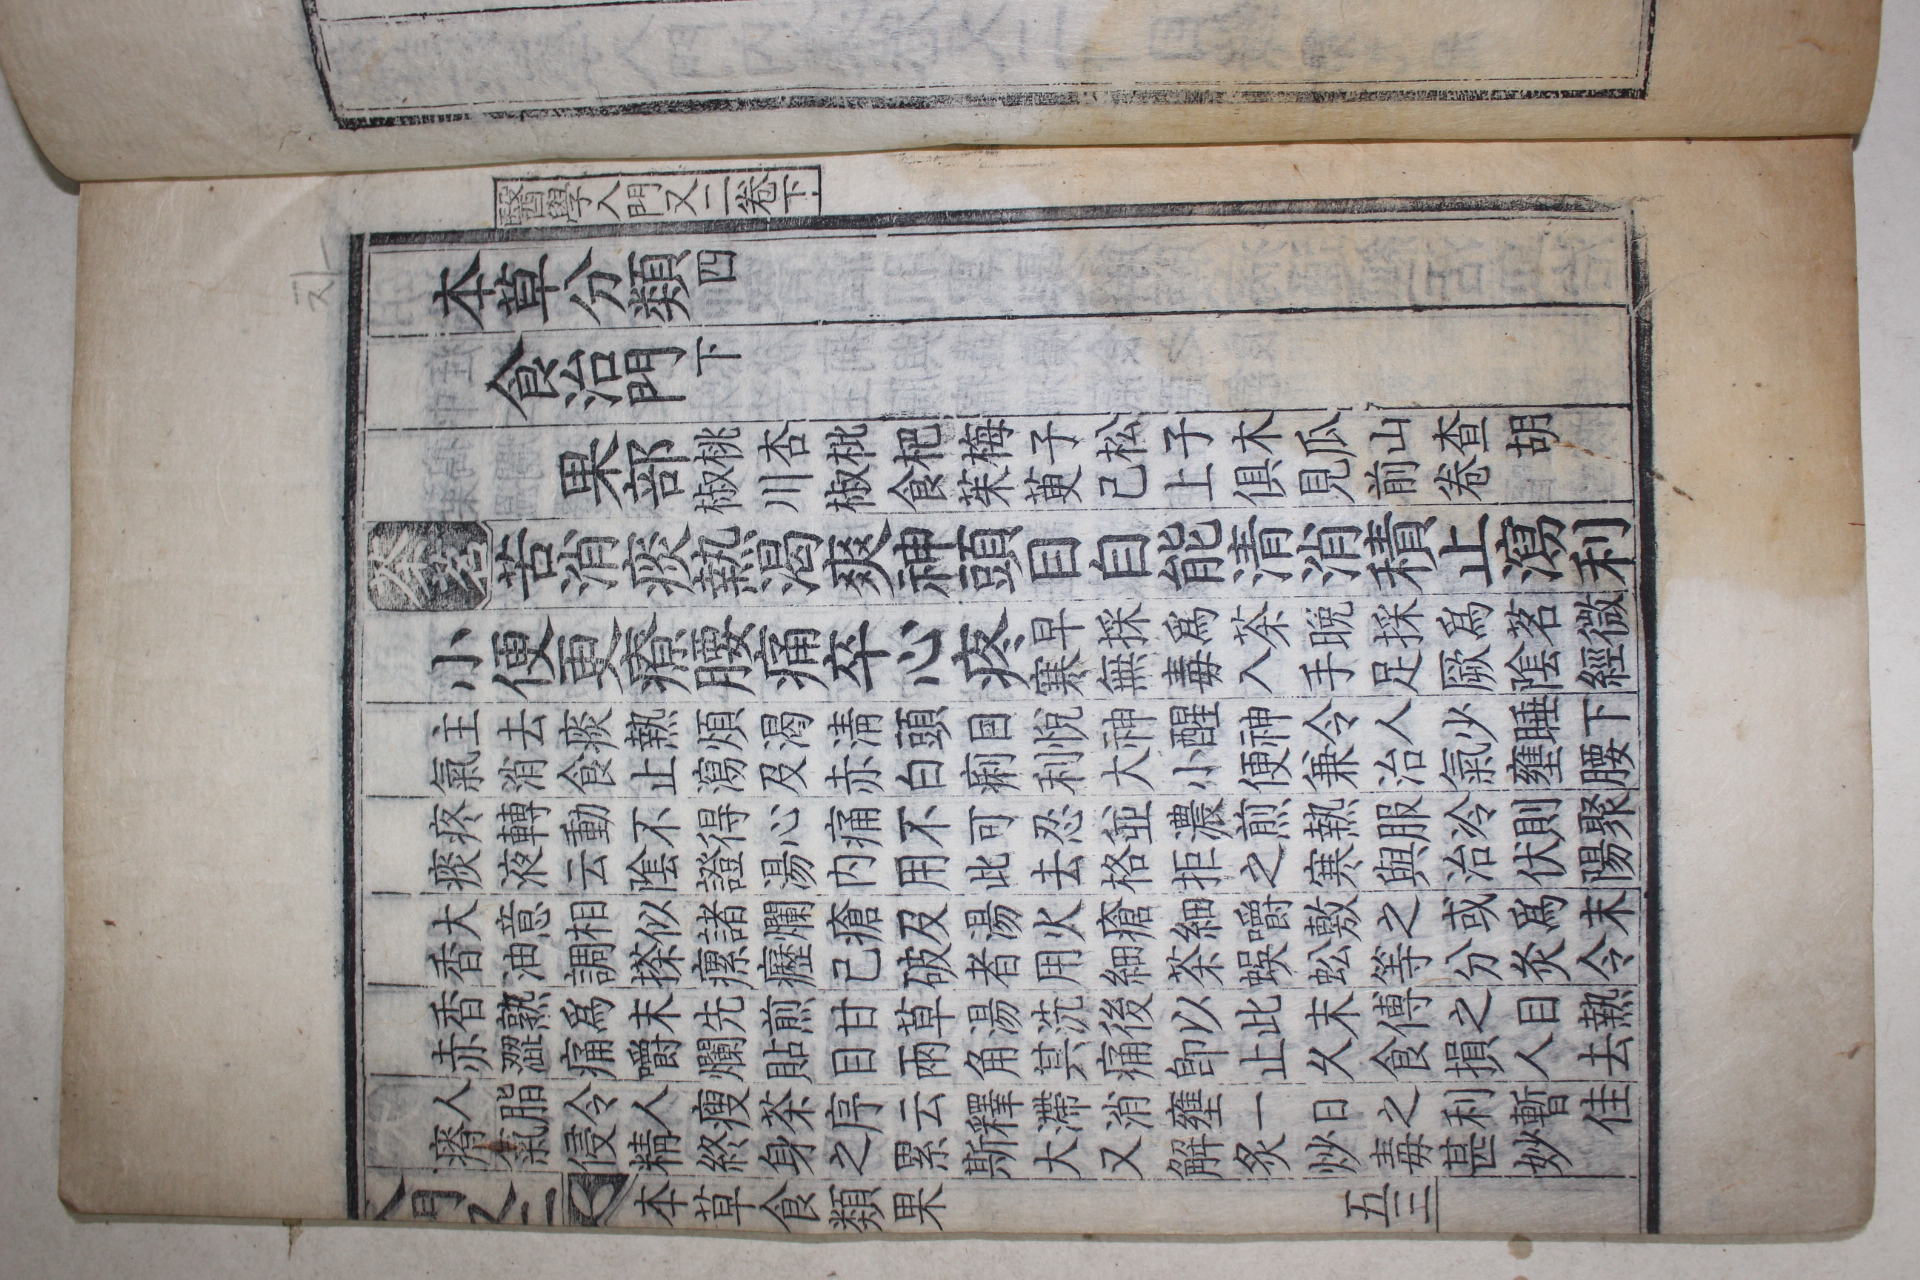 자
醫學入門又二卷下
本草分類四
食治門下
果部
桃杏枇杷梅子松子木瓜山查胡
椒川椒食茱萸已上俱見前卷
茶茗苦消痰熱渴爽神頭目自能清消積止瀉利
小便更療腰痛卒心疼
早採爲茶晩採爲茗微
寒無毒入手足厥陰經
主去痰熱煩渴淸頭目悅神醒神令人少睡下
氣消食止瀉及赤白痢利大小便兼治氣壅腰
疼轉動不得心痛不可忍並濃煎熱服冷則聚
痰液云陰證湯内用此去格拒之寒與治伏陽
大意相似諸爛瘡及湯火瘡細嚼敷之或爲末
香油調搽瘰癧已破者用細茶蜈蚣等分炙令
香熟爲末先煎甘草湯洗後以此末傅之目熱
赤澀痛嚼爛貼目兩角其痛卽止久食損人去
人脂令人瘦茶序云釋滯消壅一日之利暫佳
瘠氣侵精終身之累斯大又解炙炒毒甚妙
入門又二
本草食類果
五三